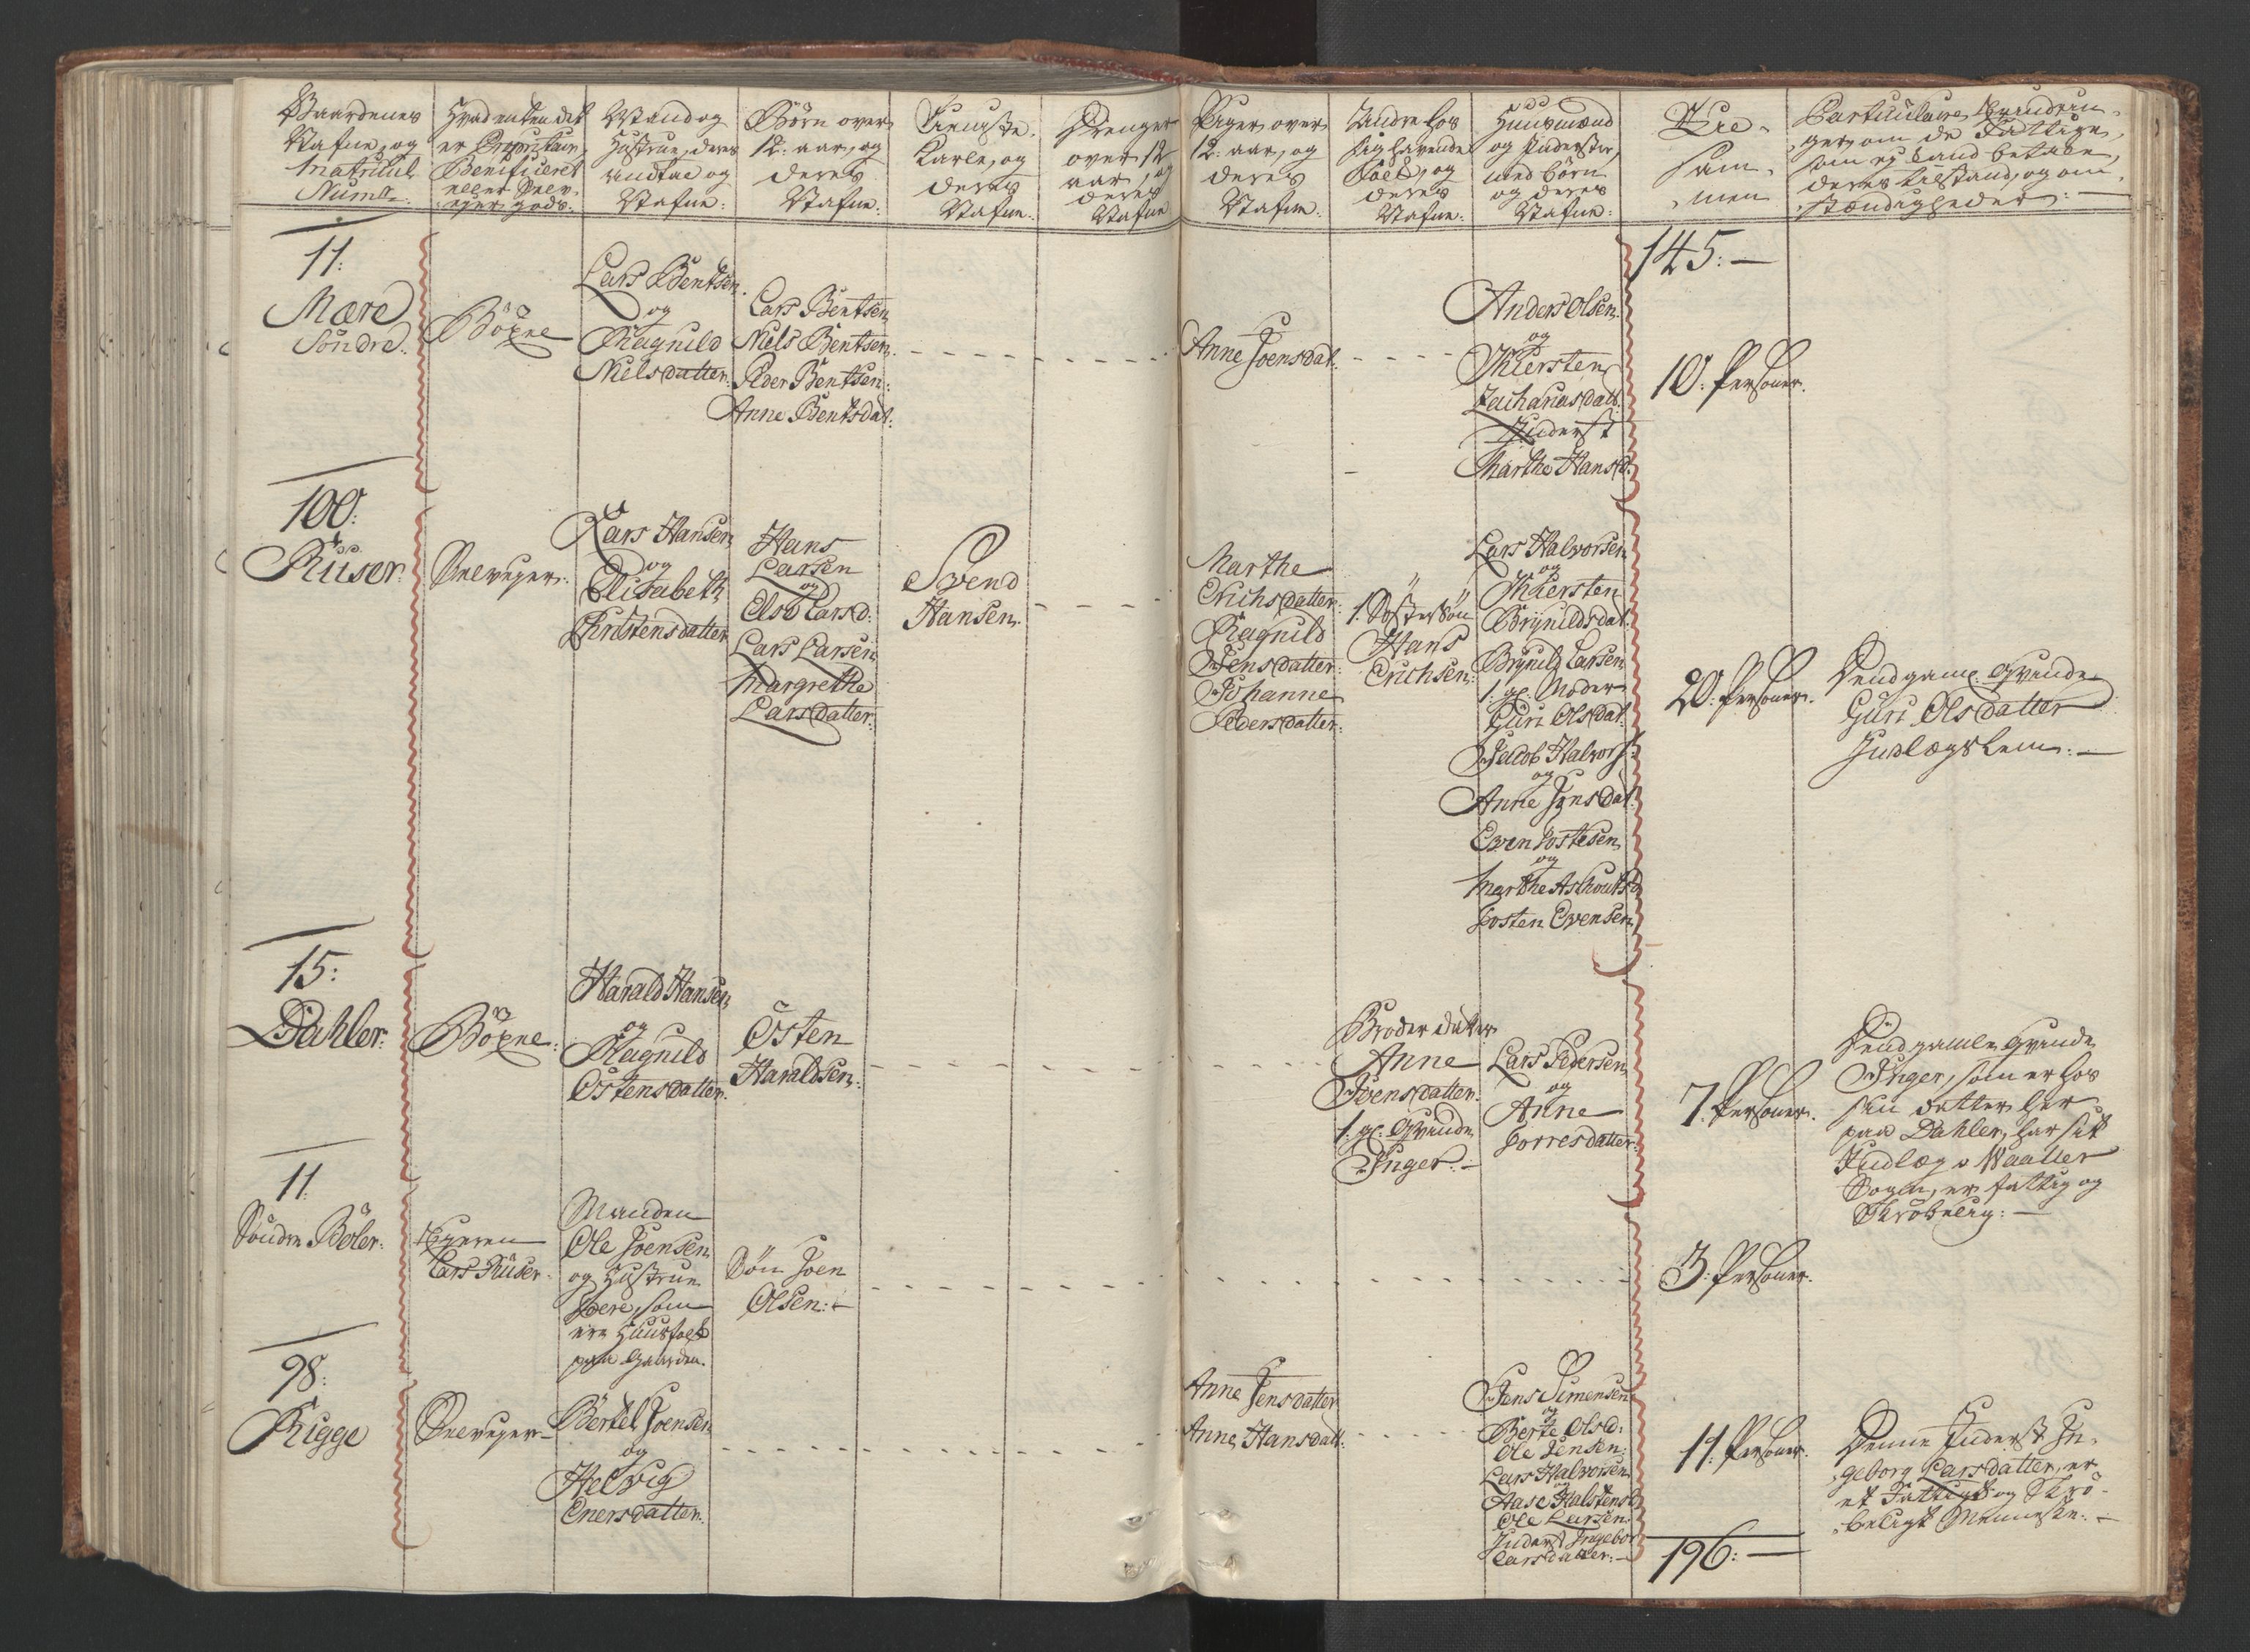 Gaardenes
Nafne, og
Matricul
Num:
Hvad enten det
er Proprietair,
Beneficeret
eller Selv-
eyer gods:
Mand og
Hustrue, deres
andtal og
Nafne:
Børn over
12: aar, og
deres
Nafne:
Tieniste
Karle, og
deres
Nafne:
Drenger
over 12
aar, og
deres
Nafne
Piger over
12: aar, og
deres
Nafne:
Andre hos
sig havende
Folk, og
deres
Nafne:
Huusmænd
og Inderster,
med børn
og deres
Nafne:
Til-
sam-
men
Particulaire Erindrin-
ger, om de Fattige,
som ej kand betale,
deres tilstand, og om-
stændigheder:
145:
11:
Mære
Søndre
Bøxne
Lars Bentsen
og
Ragnild
Nielsdatter:
Lars Bentsen
Niels Bentsen
Peder Bentsen:
Anne Bentsdat:
Anne Joensdat:
Anders Olsen
og
Kiersten
Zachariasdatt:
Inderst
Marthe Hansd:
10: Persohner.
100:
Rüser:
Selveyer:
Lars Hansen
og
Elisabeth
Christensdatter
Hans
Larsen
og
Else Larsd:
Lars Larsen
Margrethe
Larsdatter:
Svend
Hansen
Marthe
Erichsdatter:
Ragnild
Jensdatter:
Johanne
Pedersdatter:
1. Søstersøn
Hans
Erichsen:
Lars Halvorsen
og
Kiersten
Brynildsdat:
Brynild Larsen
1. gl: Moder
Guri Olsdat:
Jacob Halvors:
og
Anne Jensdat:
Even Jostesen
og
Marthe Ashoultsd
Josten Evensen
20: Persohner.
Dend gamle Qvinde
Guri Olsdatter
Indlægslem:
15:
Dahler:
Bøxne:
Harald Hansen
og
Ragnild
Østensdatter:
Østen
Haraldsen:
Broder datter
Anne
Joensdatter:
1. gl: Qvinde
Inger:
Lars Pedersen
og
Anne
Torresdatter:
7. Persohner.
Dend gamle Qvinde
Inger, som er hos
sin datter her
paa Dahler, har sit
Indlæg i Waaller
Sogn, er fattig og
Skrøbelig:
11.
Søndre Bøler:
Eyeren
Lars Rüser.
Manden
Ole Joensen
og Hustrue
Sere, som
ere Huusfolk
paa Gaarden.
Søn Joen
Olsen:
3: Persohner.
98:
Rigge
Selveyer
Bertel Joensen
og
Helvig
Enersdatter:
Anne Jensdatter
Anne Hansdatt:
Jens Simensen
og
Berte Olsd:
Ole Jensen:
Lars Halvorsen
og
Aase Halstensd
Ole Larsen:
Inderst Ingebor
Larsdatter:
11: Persohner.
Denne Inderst In-
geborg Larsdatter, er
et Fattigt og Skrø-
beligt Menneske:
196: